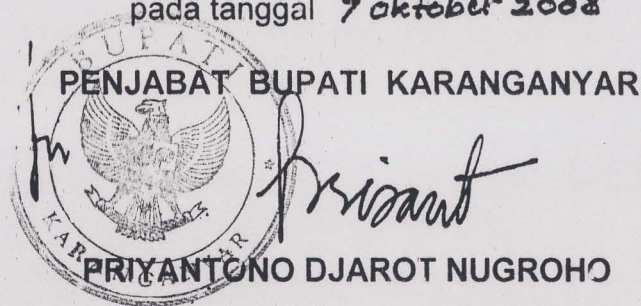 pada tanggal 7 oktober 2008
BUPATI
PENJABAT BUPATI KARANGANYAR
KARANGANYAR
PRIYANTONO DJAROT NUGROHO